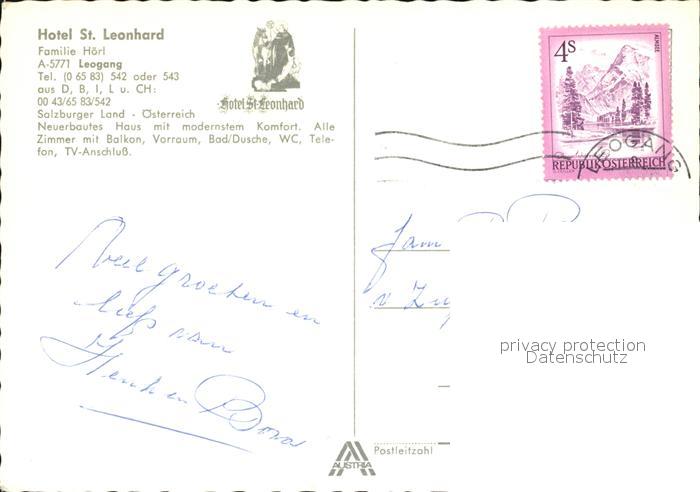 Hotel St. Leonhard
Familie Hörl
A-5771 Leogang
Tel. (0 65 83) 542 oder 543
aus D, B, I, L u. CH:
00 43/65 83/542
Salzburger Land - Österreich
Neuerbautes Haus mit modernstem Komfort. Alle
Zimmer mit Balkon, Vorraum, Bad/Dusche, WC, Tele-
fon, TV-Anschluß.
Hotel St. Leonhard
4S
ALMSEE
REPUBLIK ÖSTERREICH
LEOGANG
Veel groeten en
liefs van
Henk en
Fam
v
privacy protection
Datenschutz
Postleitzahl
AUSTRIA